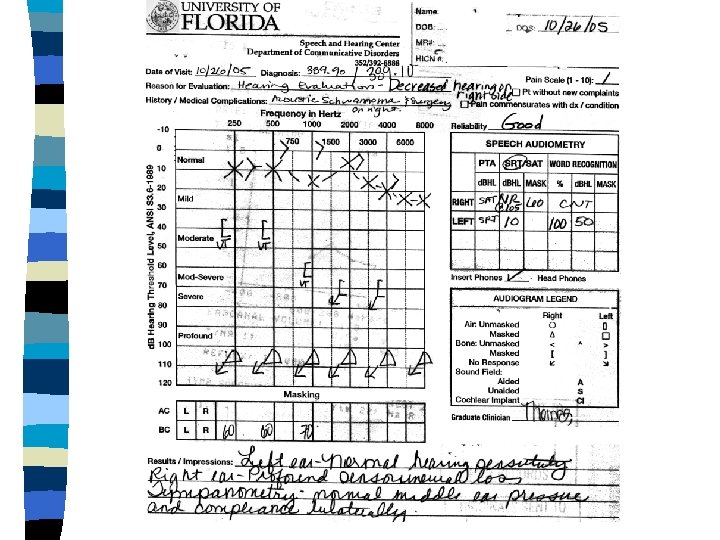 UNIVERSITY OF
FLORIDA
Speech and Hearing Center
Department of Communicative Disorders
352/392-6886
Name:
DOB: DOS: 10/26/05
MR#:
HICN #:
Date of Visit: 10/26/05 Diagnosis: 389.90
Pain Scale (1 - 10): 1
Reason for Evaluation: Hearing Evaluation - Decreased hearing on right side
Pt without new complaints
History / Medical Complications: Acoustic Schwannoma surgery on right.
Pain commensurates with dx / condition
Frequency in Hertz
250 500 1000 2000 4000 8000
750 1500 3000 6000
dB Hearing Threshold Level, ANSI S3.6-1989
-10
0
10
20
30
40
50
60
70
80
90
100
110
120
Normal
Mild
Moderate
VT VT
Mod-Severe
VT
Severe
Profound
Masking
AC L R
BC L R 60 60 70
Reliability Good
SPEECH AUDIOMETRY
PTA SRT/SAT WORD RECOGNITION
dBHL dBHL MASK % dBHL MASK
RIGHT SAT NR 60 CNT
LEFT SRT 10 100 50
Insert Phones Head Phones
AUDIOGRAM LEGEND
Right Left
Air: Unmasked
Masked
Bone: Unmasked < ^ >
Masked [ ]
No Response
Sound Field:
Aided A
Unaided S
Cochlear Implant CI
Graduate Clinician
Results / Impressions: Left ear - Normal hearing sensitivity
Right ear - Profound sensorineural loss
Tympanometry - normal middle ear pressure
and compliance bilaterally.